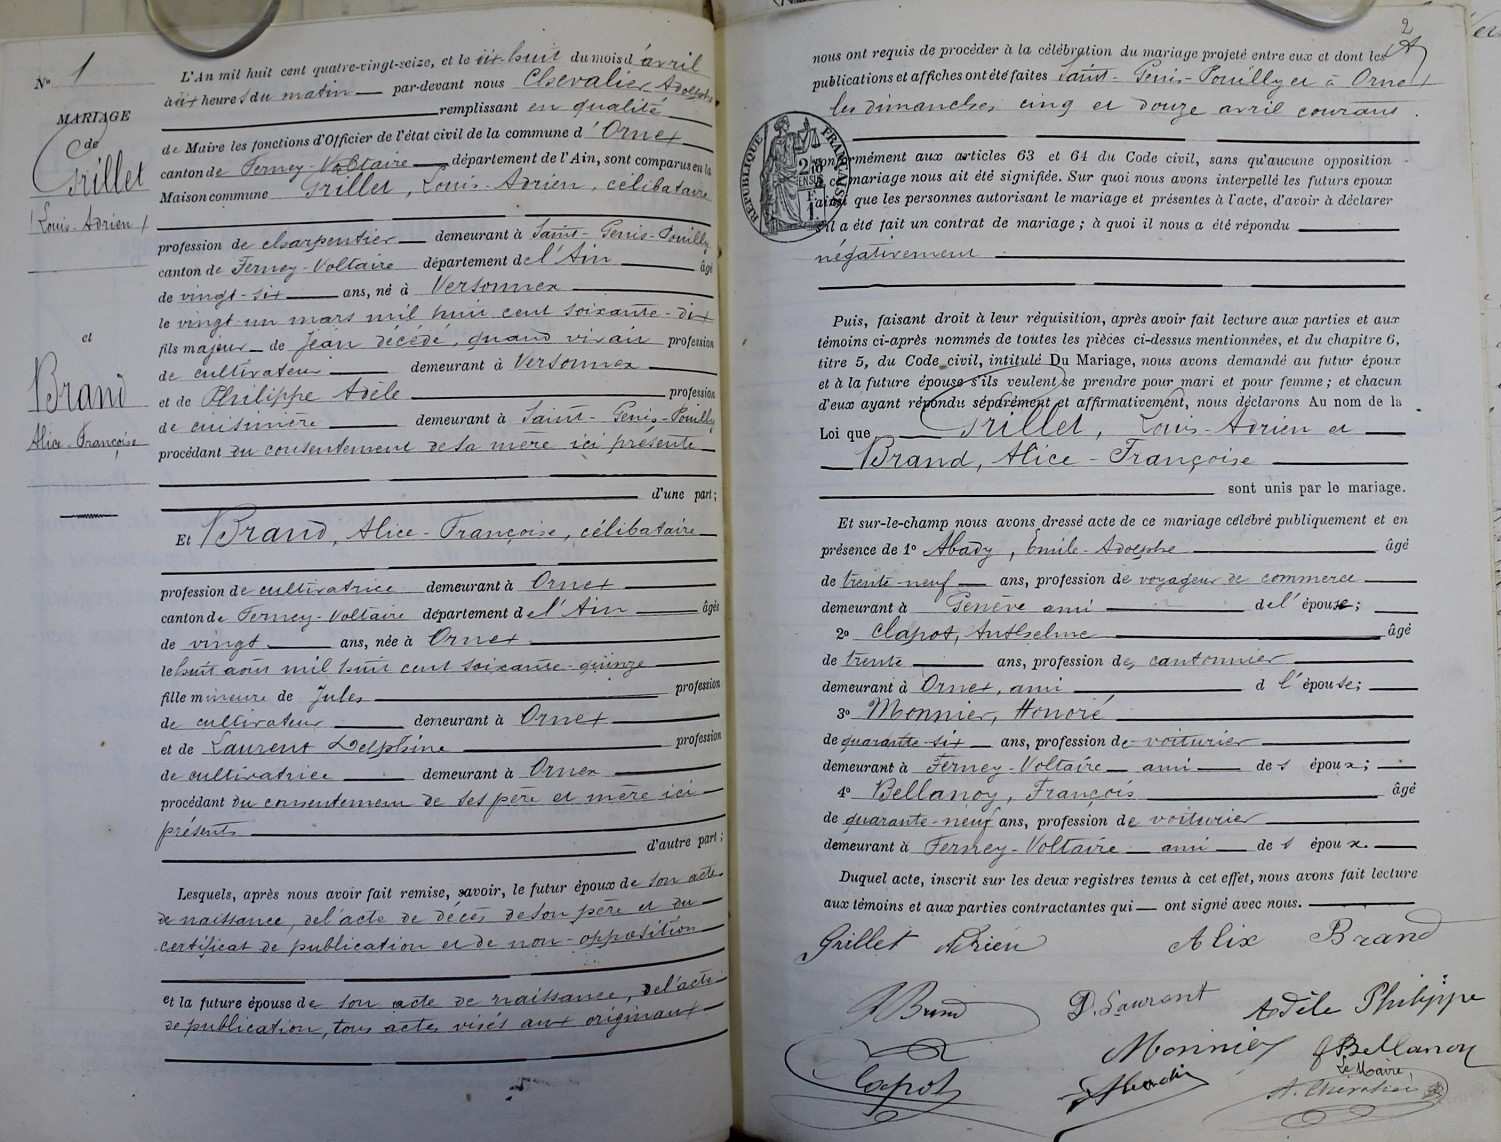 N° 1
MARIAGE
de
Grillet
Louis-Adrien
et
Brand
Alice-Françoise
L'An mil huit cent quatre-vingt-seize, et le dix-huit du mois d'avril
à dix heures du matin par-devant nous Chevalier Adolphe
remplissant en qualité
de Maire les fonctions d'Officier de l'état civil de la commune d'Ornex
canton de Ferney-Voltaire, département de l'Ain, sont comparus en la
Maison commune Grillet, Louis-Adrien, célibataire
profession de charpentier demeurant à Saint-Genis-Pouilly
canton de Ferney-Voltaire département de l'Ain âgé
de vingt-six ans, né à Versonnex
le vingt-un mars mil huit cent soixante-dix
fils majeur de Jean décédé, quand vivait profession
de cultivateur demeurant à Versonnex
et de Philippe Adèle profession
de cuisinière demeurant à Saint-Genis-Pouilly
procédant du consentement de sa mère ici présente
d'une part;
Et Brand, Alice-Françoise, célibataire
profession de cultivatrice demeurant à Ornex
canton de Ferney-Voltaire département de l'Ain âgée
de vingt ans, née à Ornex
le huit août mil huit cent soixante-quinze
fille mineure de Jules profession
de cultivateur demeurant à Ornex
et de Laurent Delphine profession
de cultivatrice demeurant à Ornex
procédant du consentement de ses père et mère ici
présents
d'autre part;
Lesquels, après nous avoir fait remise, savoir, le futur époux de son acte
de naissance, de l'acte de décès de son père et du
certificat de publication et de non-opposition
et la future épouse de son acte de naissance, de l'acte
de publication, tous actes visés aux originaux
2
nous ont requis de procéder à la célébration du mariage projeté entre eux et dont les
publications et affiches ont été faites Saint-Genis-Pouilly et à Ornex
les dimanches cinq et douze avril courant.
RÉPUBLIQUE FRANÇAISE
conformément aux articles 63 et 64 du Code civil, sans qu'aucune opposition
à ce mariage nous ait été signifiée. Sur quoi nous avons interpellé les futurs époux
ainsi que les personnes autorisant le mariage et présentes à l'acte, d'avoir à déclarer
s'il a été fait un contrat de mariage; à quoi il nous a été répondu
négativement
Puis, faisant droit à leur réquisition, après avoir fait lecture aux parties et aux
témoins ci-après nommés de toutes les pièces ci-dessus mentionnées, et du chapitre 6,
titre 5, du Code civil, intitulé Du Mariage, nous avons demandé au futur époux
et à la future épouse s'ils veulent se prendre pour mari et pour femme; et chacun
d'eux ayant répondu séparément et affirmativement, nous déclarons Au nom de la
Loi que Grillet, Louis-Adrien et
Brand, Alice-Françoise
sont unis par le mariage.
Et sur-le-champ nous avons dressé acte de ce mariage célébré publiquement et en
présence de 1° Abady, Emile-Adolphe âgé
de trente-neuf ans, profession de voyageur de commerce
demeurant à Genève ami de l'épouse;
2° Clapot, Anthelme âgé
de trente ans, profession de cantonnier
demeurant à Ornex, ami d l'épouse;
3° Monnier, Honoré
de quarante-six ans, profession de voiturier
demeurant à Ferney-Voltaire ami des époux;
4° Bellanoy, François âgé
de quarante-neuf ans, profession de voiturier
demeurant à Ferney-Voltaire ami des époux.
Duquel acte, inscrit sur les deux registres tenus à cet effet, nous avons fait lecture
aux témoins et aux parties contractantes qui ont signé avec nous.
Grillet Adrien Alix Brand
J Brand D. Laurent Adèle Philippe
Monnier F Bellanoy
Clapot
Le Maire,
A. Chevalier